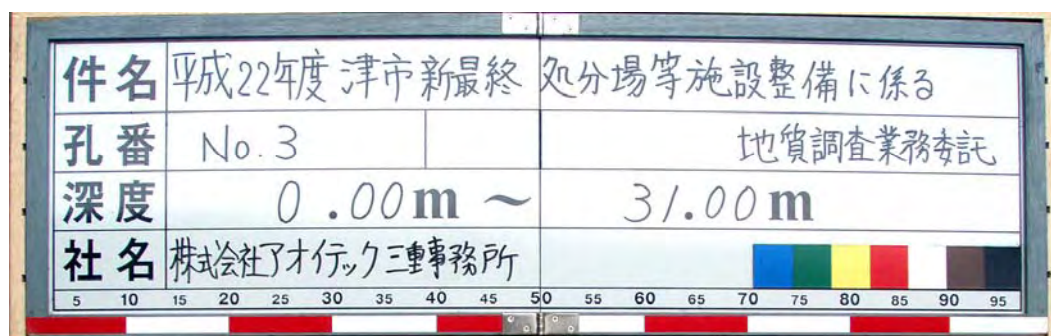 件名 平成22年度 津市新最終処分場等施設整備に係る
孔番 No.3 地質調査業務委託
深度 0.00m ~ 31.00m
社名 株式会社アオイテック三重事務所
5 10 15 20 25 30 35 40 45 50 55 60 65 70 75 80 85 90 95